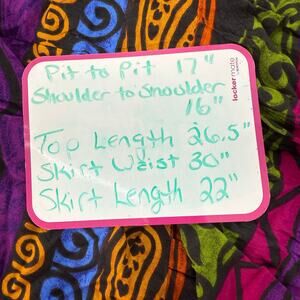 Pit to Pit 17"
Shoulder to Shoulder
16"
Top Length 26.5"
Skirt Waist 30"
Skirt Length 22"
lockermate